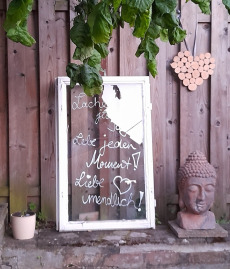 Lache
Lebe jeden
Moment!
Liebe
unendlich!